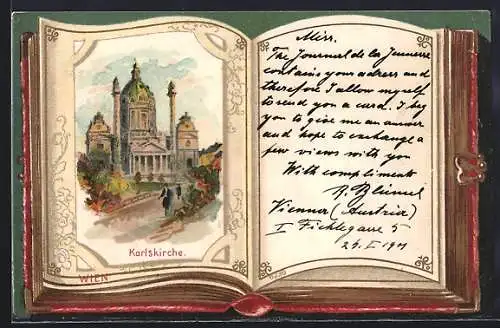 Karlskirche.
WIEN
Miss.
The Journal de la Jeunesse
contains your adress and
therefore I allow myself
to send you a card. I beg
you to give me an answer
and hope to exchange a
few views with you
With compliments
R. Blümel
Vienna (Austria)
I Fichtegasse 5